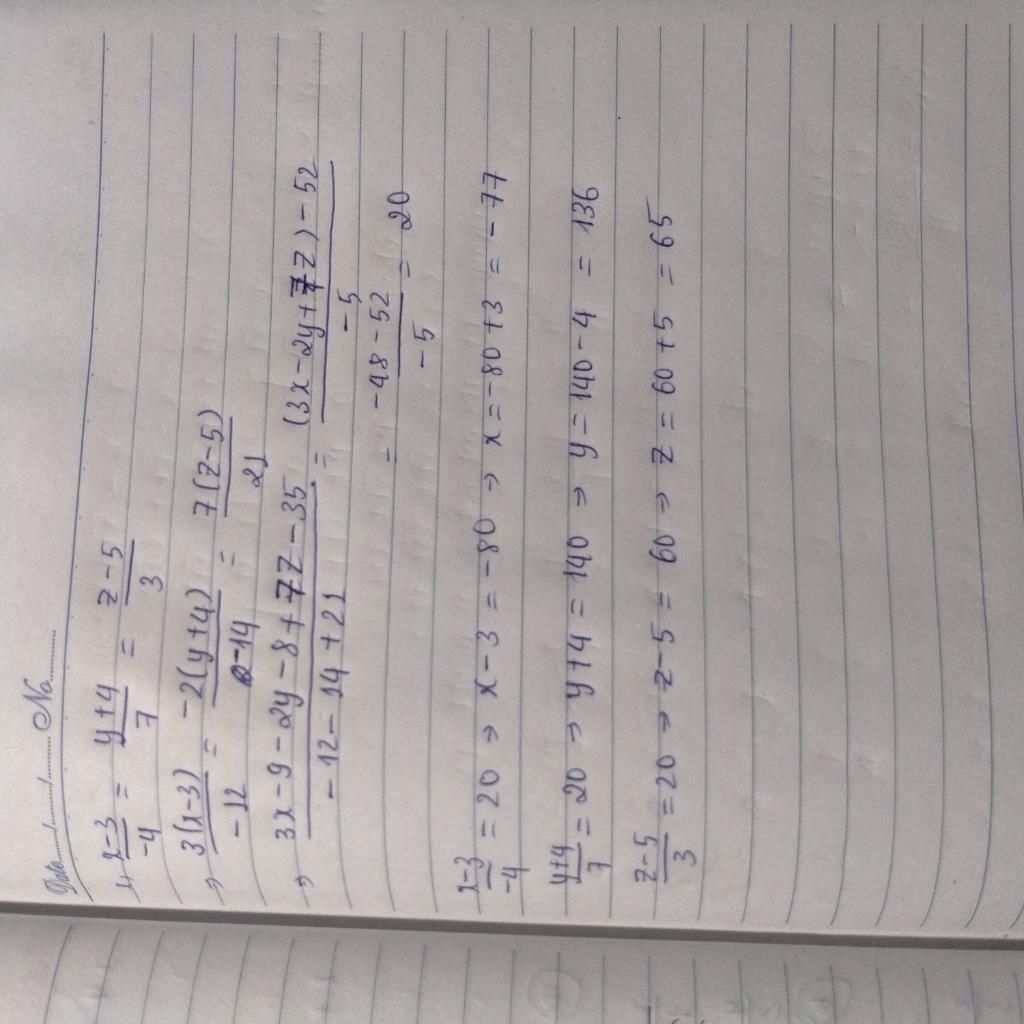 Date....../....../...... No............
, x-3/-4 = y+4/7 = z-5/3
⇒ 3(x-3)/-12 = -2(y+4)/-14 = 7(z-5)/21
⇒ 3x-9-2y-8+7z-35/-12-14+21 = (3x-2y+7z)-52/-5
= -48-52/-5 = 20
x-3/-4 = 20 ⇒ x-3 = -80 ⇒ x = -80+3 = -77
y+4/7 = 20 ⇒ y+4 = 140 ⇒ y = 140-4 = 136
z-5/3 = 20 ⇒ z-5 = 60 ⇒ z = 60+5 = 65